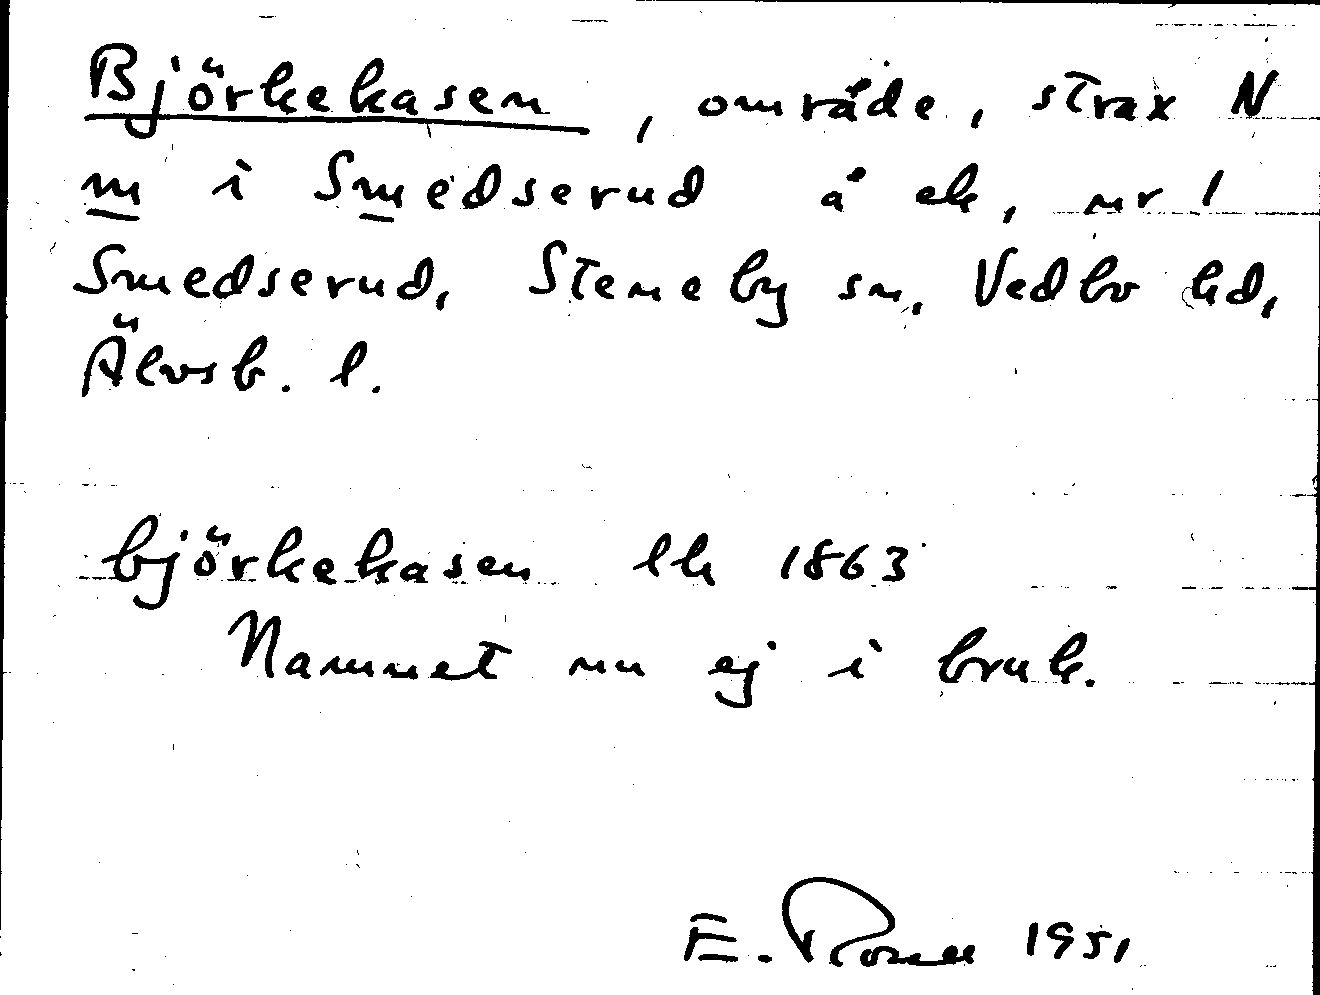 Björkekasen, område, strax N
m i Smedserud å ek, nr 1
Smedserud, Steneby sn, Vedbo hd,
Älvsb. l.
björkekasen lk 1863
Namnet nu ej i bruk.
E. 1951